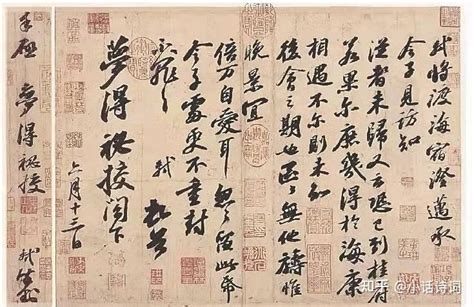 軾將渡海宿澄邁承
令子見訪知
從者未歸又云恐已到桂府
若果尔庶幾得於海康
相遇不尔則未知
後會之期也區區無他禱惟
晚景宜
倍万自愛耳忽忽留此帋
令子處更不重封
不罪不罪
軾 頓首
夢得祕校閣下
六月十三日
手啟 夢得祕校 軾封
知乎 @小话诗词